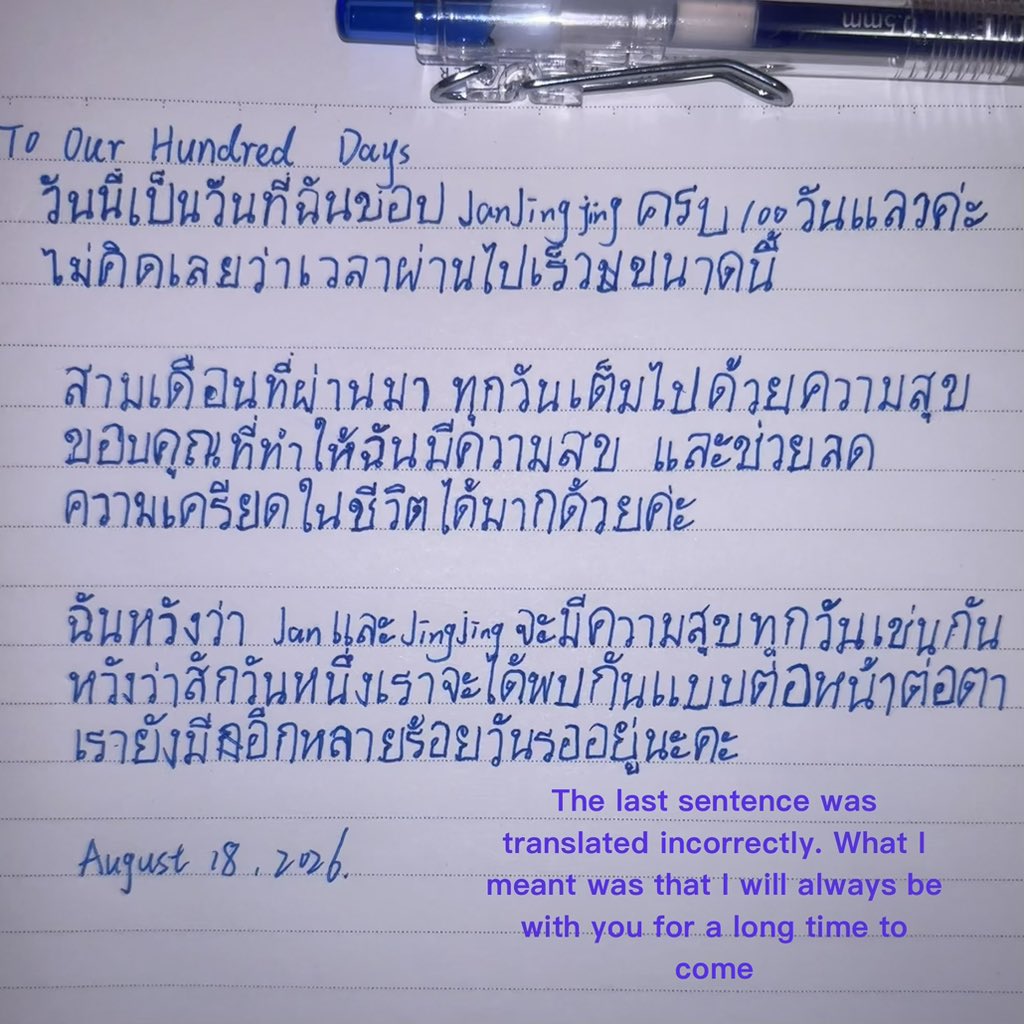 0.5mm
To Our Hundred Days
วันนี้เป็นวันที่ฉันชอบ JanJingjing ครบ 100 วันแลวค่ะ
ไม่คิดเลยว่าเวลาผ่านไปเร็วขนาดนี้
สามเดือนที่ผ่านมา ทุกวันเต็มไปด้วยความสุข
ขอบคุณที่ทำให้ฉันมีความสข และช่วยลด
ความเครียดในชีวิตได้มากด้วยค่ะ
ฉันหวังว่า Jan และJingjing จะมีความสุขทุกวันเช่นกัน
หวังว่าสักวันหนึ่งเราจะได้พบกันแบบต่อหน้าต่อตา
เรายังมีอีกหลายร้อยวันรออยู่นะคะ
August 18, 2026.
The last sentence was
translated incorrectly. What I
meant was that I will always be
with you for a long time to
come